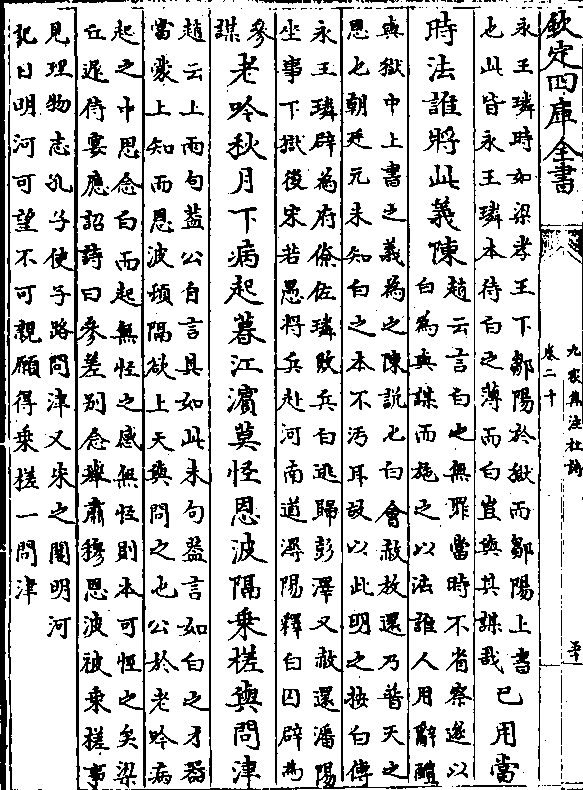 欽定四庫全書
九家集注杜詩
卷二十
永王璘時如梁孝王下鄒陽於獄而鄒陽上書
也此皆永王璘本待白之薄而白豈與其謀哉
已用當
時法誰將此義陳
趙云言白之無罪當時不省察遂以
白為與謀而施之以法誰人用辭醴
與獄中上書之義為之陳說也白會赦放還乃普天之
恩也朝廷元未知白之本不汚耳故以此明之按白傳
永王璘辟為府僚佐璘敗兵白逃歸彭澤又赦還潘陽
坐事下獄後宋若愚將兵赴河南道潯陽釋白囚辟為
參
謀
老吟秋月下病起暮江濱莫怪恩波隔乘槎與問津
趙云上兩句蓋公自言其如此末句蓋言如白之才器
當豪上知而恩波頓隔欲上天與問之也公於老吟病
起之中思念白而起無怪之感無怪則本可怪之矣梁
丘遲侍宴應詔詩曰參差別念舉肅穆恩波被乘槎事
見理物志孔子使子路問津又宋之問明河
記曰明河可望不可親願得乘槎一問津